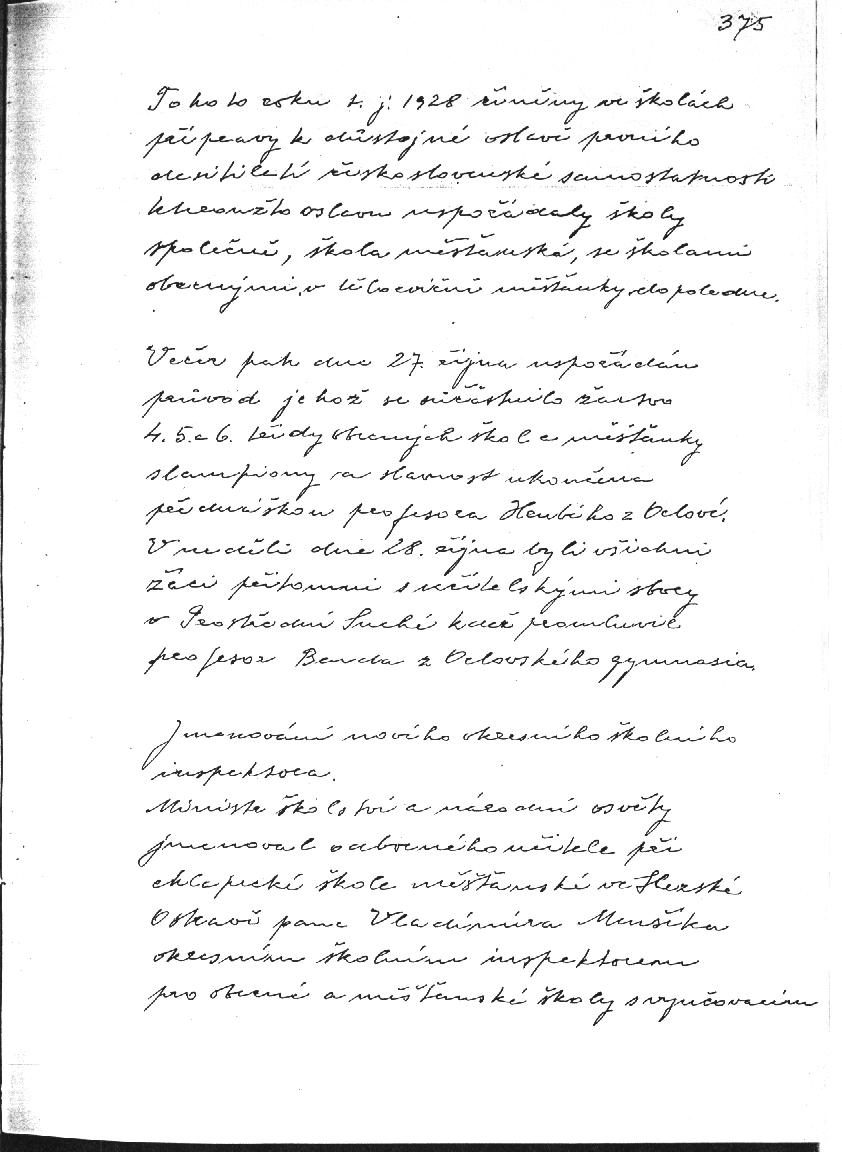 375
Tohoto roku t. j. 1928 činěny ve školách
přípravy k důstojné oslavě prvního
desitiletí československé samostatnosti
kteroužto oslavu uspořádaly školy
společně, škola měšťanská, se školami
obecnými, v tělocvičně měšťanky dopoledne.
Večer pak dne 27. října uspořádán
průvod jehož se súčastnilo žactvo
4. 5. a 6. třídy obecných škol a měšťanky
s lampiony a slavnost ukončena
přednáškou profesora Hrubého z Orlové.
V neděli dne 28. října byli všichni
žáci přítomni s učitelskými sbory
v Prostřední Suché kdež promluvil
profesor Banda z Orlovského gymnasia.
Jmenování nového okresního školního
inspektora.
Ministr školství a národní osvěty
jmenoval odborného učitele při
chlapecké škole měšťanské ve Slezské
Ostravě pana Vladimíra Menšíka
okresním školním inspektorem
pro obecné a měšťanské školy s vyučovacím